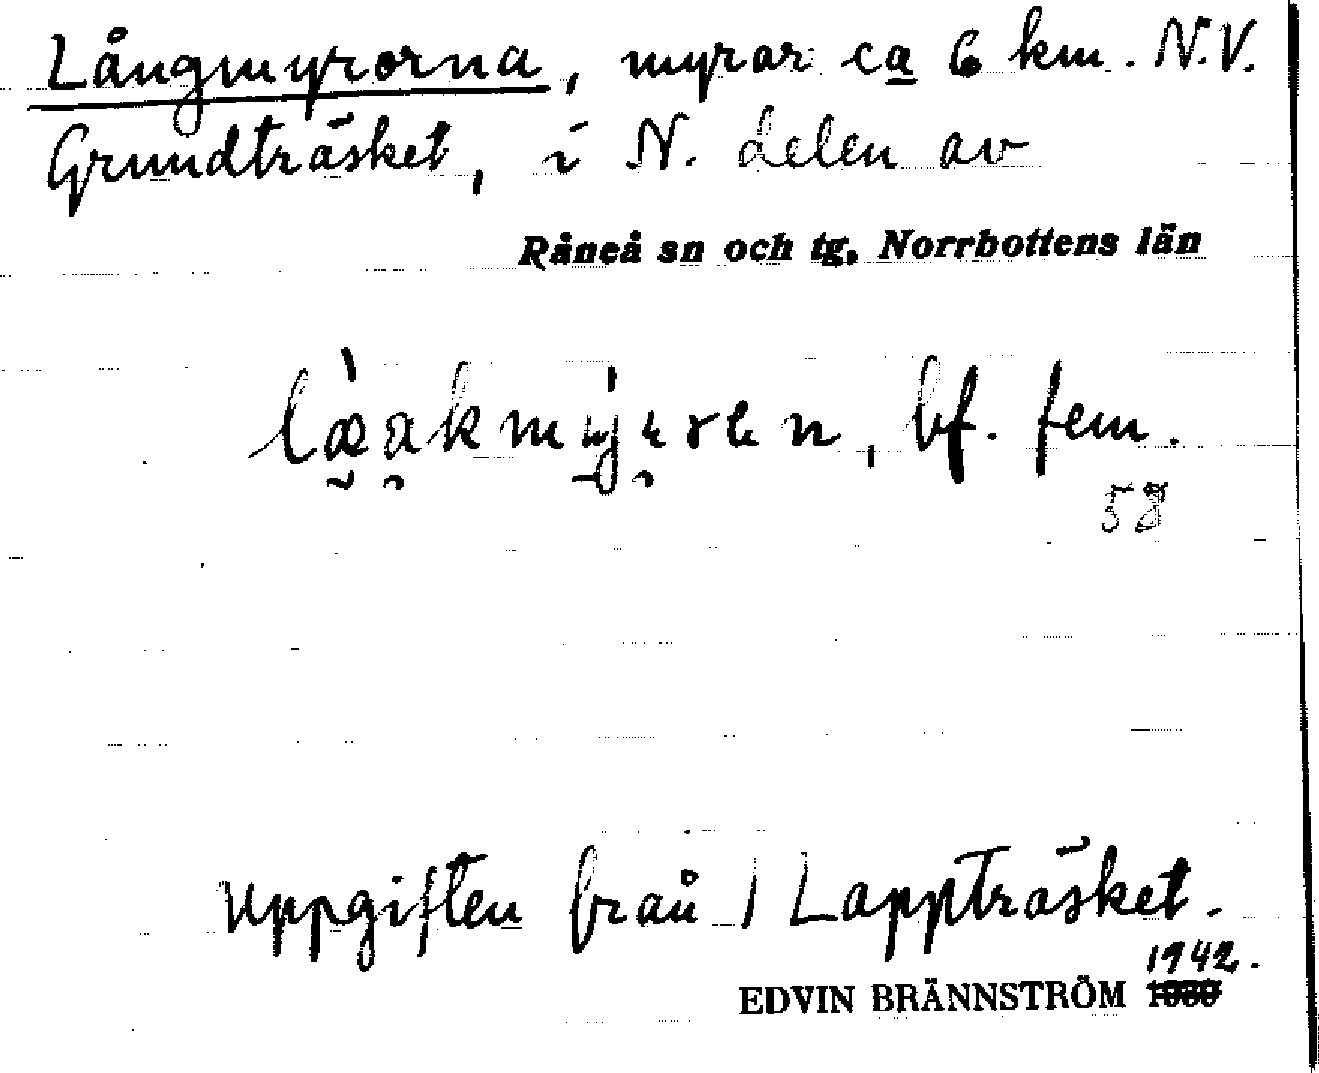 Långmyrorna, myrar ca 6 km. N.V.
Grundträsket, i N. delen av
Råneå sn och tg, Norrbottens län
bf. fem.
58
Uppgiften från Lappträsket.
1942.
EDVIN BRÄNNSTRÖM 1939